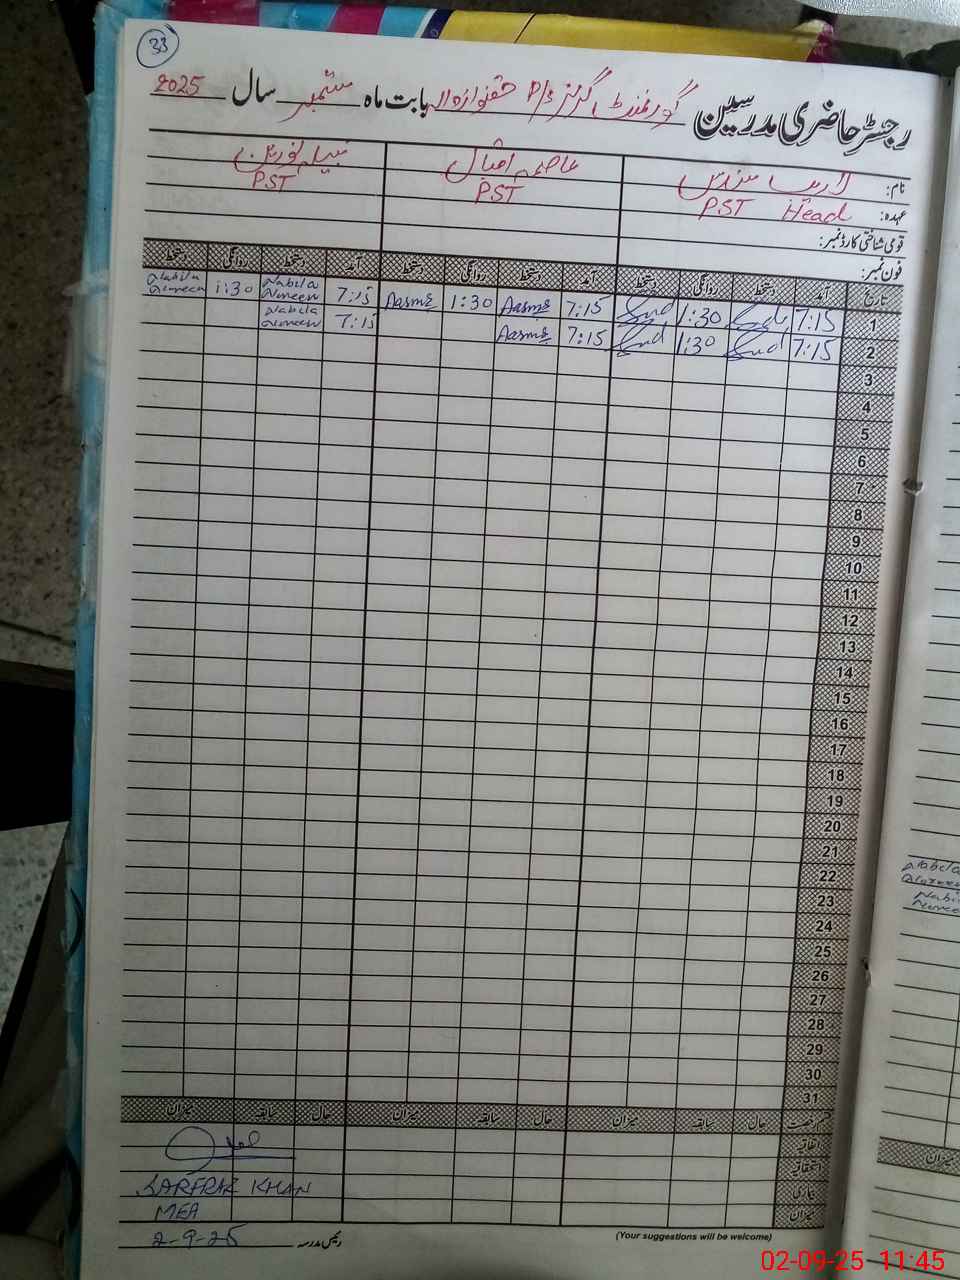 33
رجسٹر حاضری مدرسین گورنمنٹ گرلز P/S بابت ماہ ستمبر سال 2025
نام: عاصمہ اقبال نبیلہ نورین
عہدہ: PST Head PST PST
قومی شناختی کارڈ نمبر:
فون نمبر:
تاریخ آمد دستخط روانگی دستخط آمد دستخط روانگی دستخط آمد دستخط روانگی دستخط
1 7:15 1:30 7:15 Aasma 1:30 Aasma 7:15 Nabila Noreen 1:30 Nabila Noreen
2 7:15 1:30 7:15 Aasma 7:15 Nabila Noreen
3
4
5
6
7
8
9
10
11
12
13
14
15
16
17
18
19
20
21
22
23
24
25
26
27
28
29
30
31
قسم رخصت حال سابقہ میزان حال سابقہ میزان حال سابقہ میزان
اتفاقیہ
استحقاقیہ
بیماری
میزان
SARFRAZ KHAN
MEA
2-9-25
رئیس مدرسہ
(Your suggestions will be welcome)
Nabila
Noreen
Nabila
Noreen
میزان
02-09-25 11:45